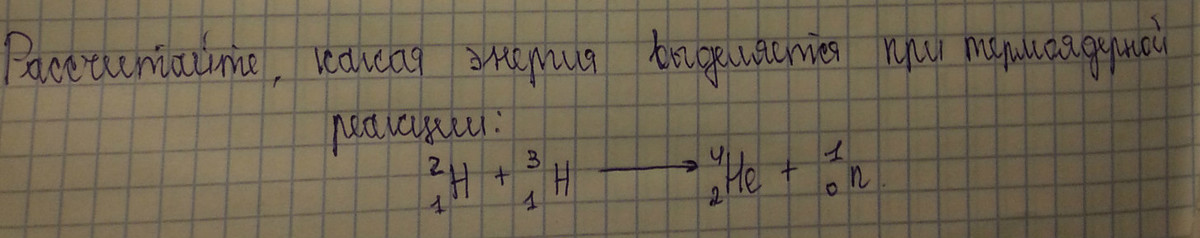 Рассчитайте, какая энергия выделяется при термоядерной
реакции:
²₁H + ³₁H ⟶ ⁴₂He + ¹₀n.